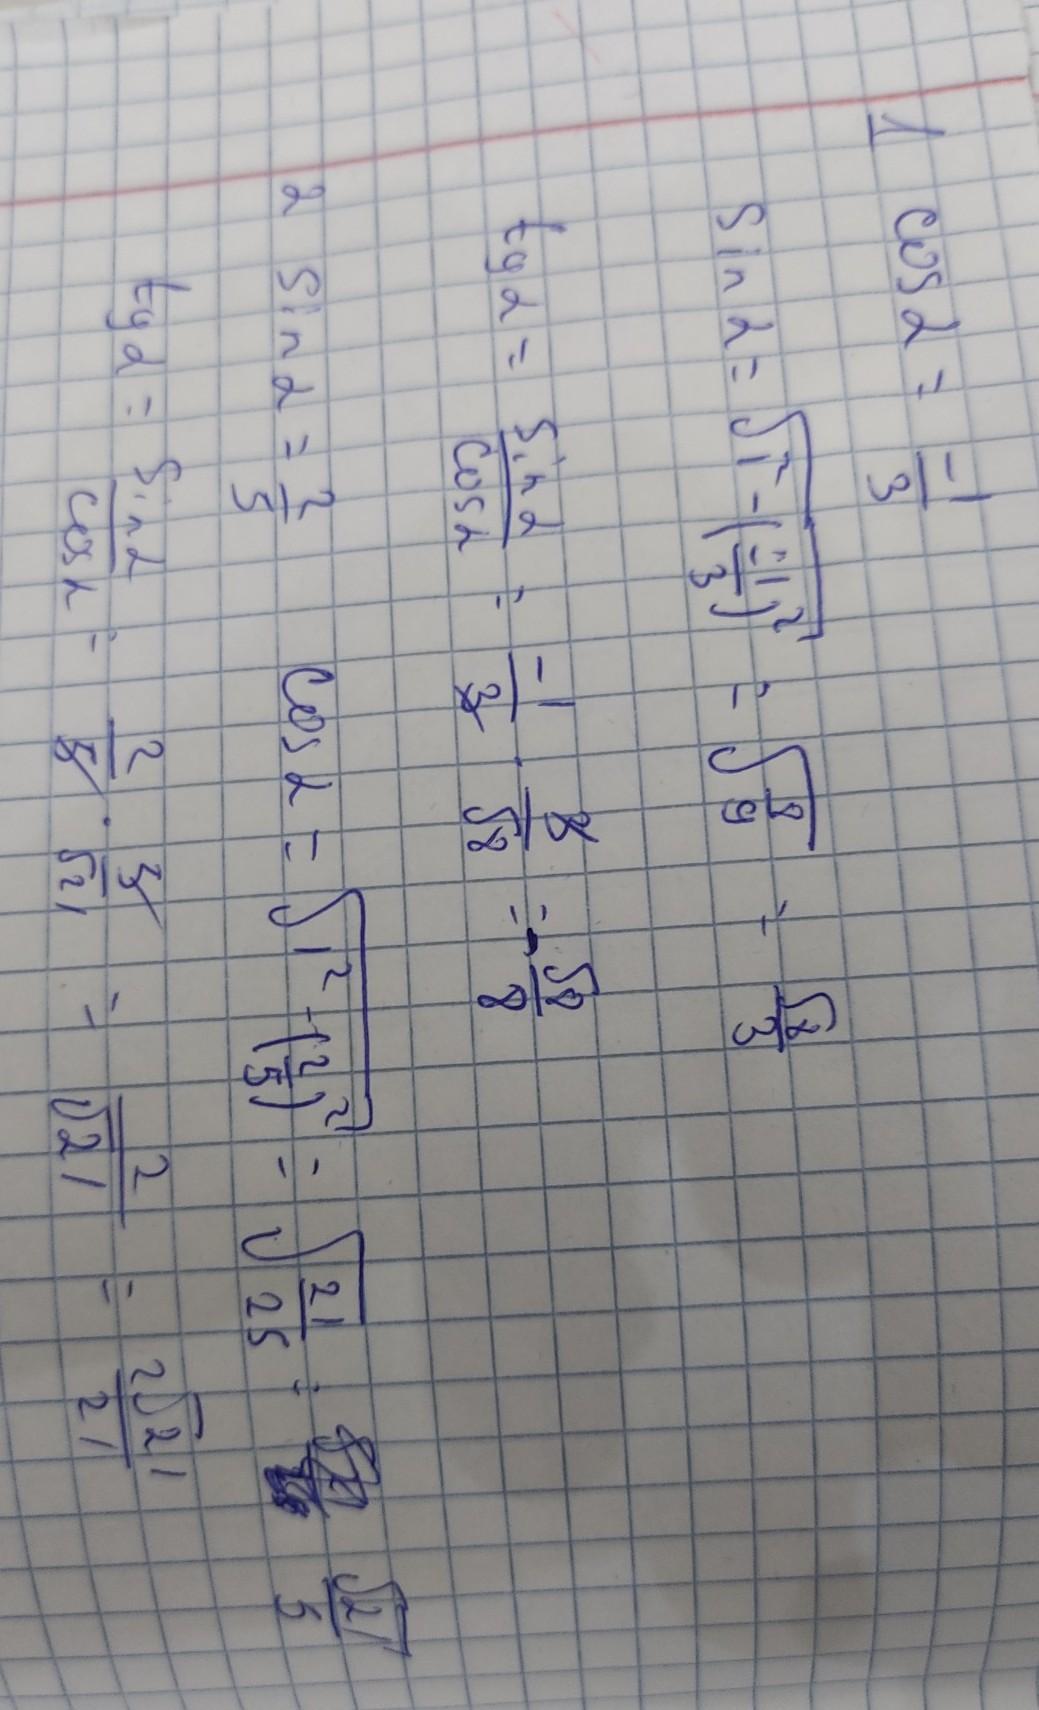 1 cos α = -1/3
sin α = √(1 - (-1/3)²) = √(8/9) = √8/3
tg α = sin α/cos α = -1/3 · 3/√8 = -√8/8
2 sin α = 2/5 cos α = √(1² - (2/5)²) = √(21/25) = √21/5
tg α = sin α/cos α = 2/5 · 5/√21 = 2/√21 = 2√21/21